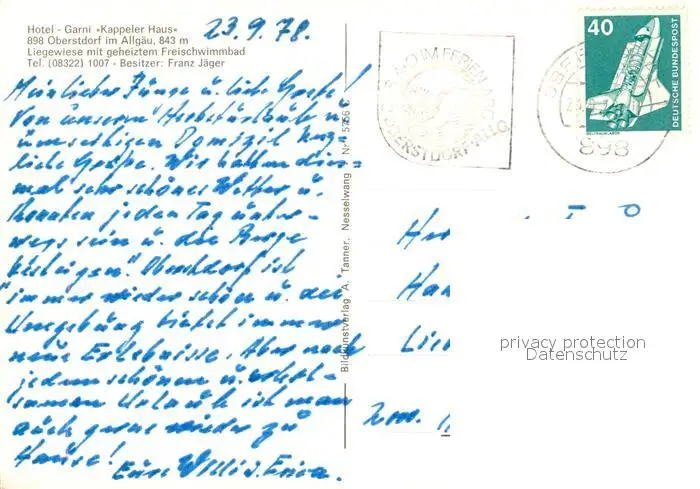 Hotel - Garni «Kappeler Haus»
898 Oberstdorf im Allgäu, 843 m
Liegewiese mit geheiztem Freischwimmbad
Tel. (08322) 1007 - Besitzer: Franz Jäger
23.9.78.
Mein lieber Junge u. liebe Grete!
Von unserem Herbsturlaub u.
unserem Domizil herz-
liche Grüße. Wir hatten dies-
mal sehr schönes Wetter u.
konnten jeden Tag unter-
wegs sein u. die Berge
besteigen. Oberstdorf ist
immer wieder schön u. die
Umgebung bietet immer
neue Erlebnisse. Aber nach
jedem schönen u. erhol-
samen Urlaub ist man
auch gerne wieder zu
Hause!
Eure Willi u. Erica.
Bildkunstverlag A. Tanner, Nesselwang Nr.
40
DEUTSCHE BUNDESPOST
WELTRAUMLABOR
RAD IM FERIEN
OBERSTDORF/ALLG.
OBER
898
privacy protection
Datenschutz